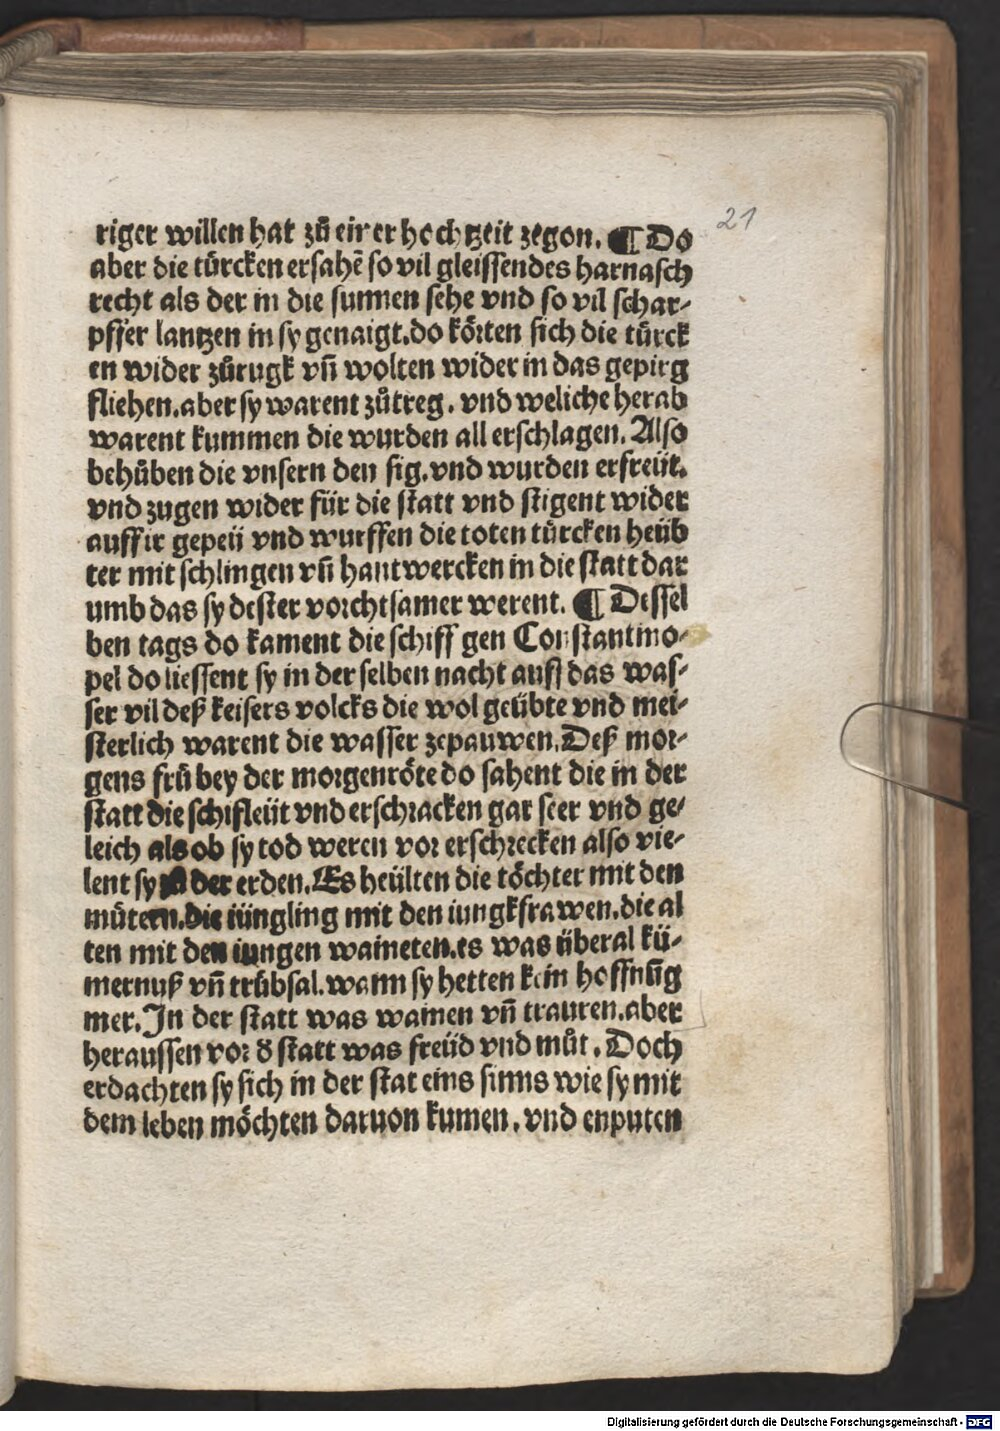 21
riger willen hat zů einer hochtzeit zegon. ¶ Do
aber die türcken ersahē so vil gleissendes harnasch
recht als der in die sunnen sehe vnd so vil schar⸗
pffer lantzen in sy genaigt. do körten sich die türck
en wider zůrugk vñ wolten wider in das gepirg
fliehen. aber sy warent zůtreg. vnd weliche herab
warent kummen die wurden all erschlagen. Also
behůben die vnsern den sig. vnd wurden erfreüt.
vnd zugen wider für die statt vnd stigent wider
auff ir gepeü vnd wurffen die toten türcken heüb
ter mit schlingen vñ hantwercken in die statt dar
umb das sy dester vorchtsamer werent. ¶ Dessel
ben tags do kament die schiff gen Constantino⸗
pel do liessent sy in der selben nacht auff das was⸗
ser vil deß keisers volcks die wol geübte vnd mei⸗
sterlich warent die wasser zepauwen. Deß mor⸗
gens frů bey der morgenröte do sahent die in der
statt die schifleüt vnd erschracken gar seer vnd ge⸗
leich als ob sy tod weren vor erschrecken also vie⸗
lent sy der erden. Es heülten die töchter mit den
mütern. die iüngling mit den iungkfrawen. die al
ten mit den iungen waineten. es was überal kü⸗
mernuß vñ trübsal. wann sy hetten kein hoffnūg
mer. In der statt was wainen vñ trauren. aber
heraussen vor d̕ statt was freüd vnd můt. Doch
erdachten sy sich in der stat eins sinns wie sy mit
dem leben möchten daruon kumen. vnd enputen
Digitalisierung gefördert durch die Deutsche Forschungsgemeinschaft - DFG